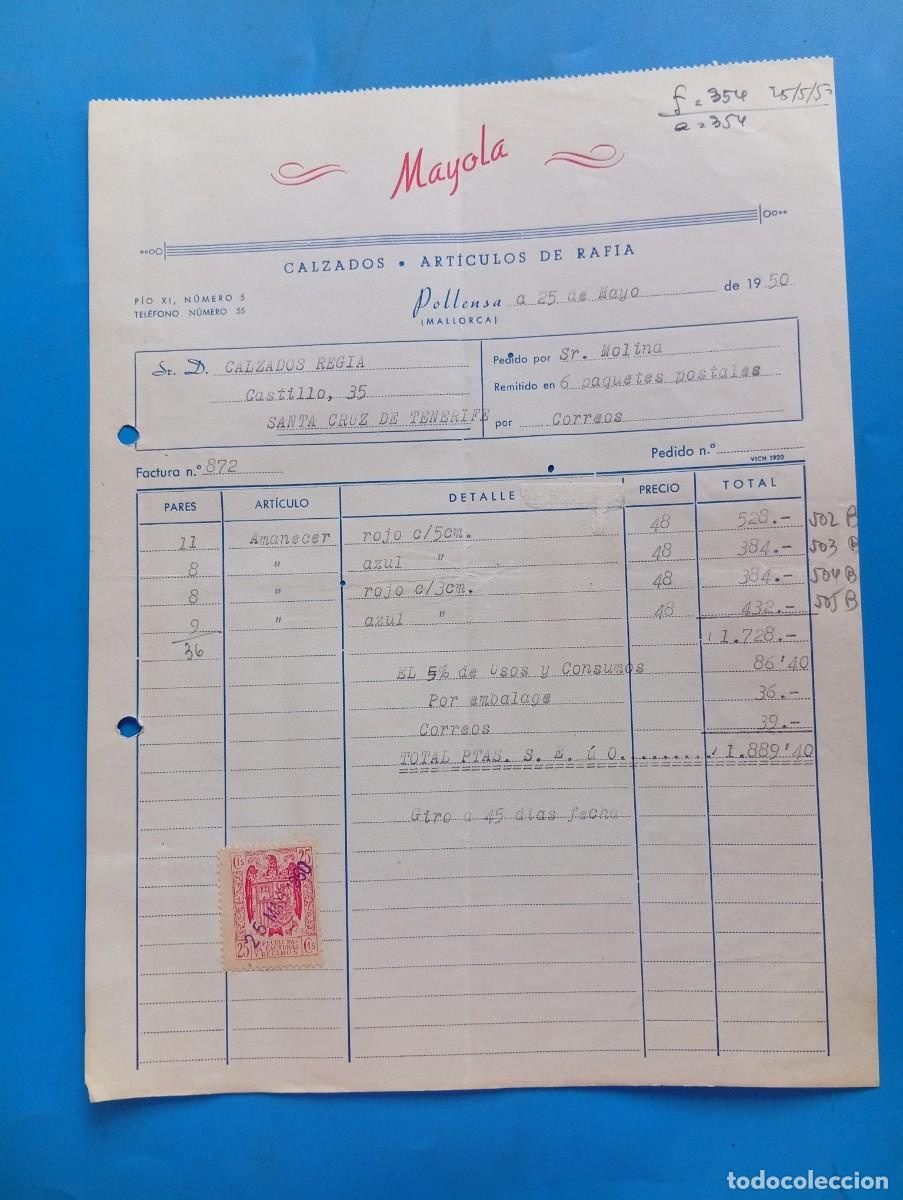 f = 354 25/5/5
a = 354
Mayola
CALZADOS • ARTÍCULOS DE RAFIA
PÍO XI, NÚMERO 5
TELÉFONO NÚMERO 55
Pollensa a 25 de Mayo de 1950
(MALLORCA)
Sr. D. CALZADOS REGIA
Castillo, 35
SANTA CRUZ DE TENERIFE
Pedido por Sr. Molina
Remitido en 6 paquetes postales
por Correos
Factura n.º 872
Pedido n.º
VICH 1920
PARES ARTÍCULO DETALLE PRECIO TOTAL
11 Amanecer rojo c/5cm. 48 528.- 502 B
8 " azul " 48 384.- 503 B
8 " rojo c/3cm. 48 384.- 504 B
9 " azul " 48 432.- 505 B
36 1.728.-
EL 5% de Usos y Consumos 86'40
Por embalage 36.-
Correos 39.-
TOTAL PTAS. S. E. ú O......... 1.889'40
Giro a 45 dias fecha
Cts 25
25 Cts
ESPECIAL PARA
FACTURAS
Y RECIBOS
todocoleccion